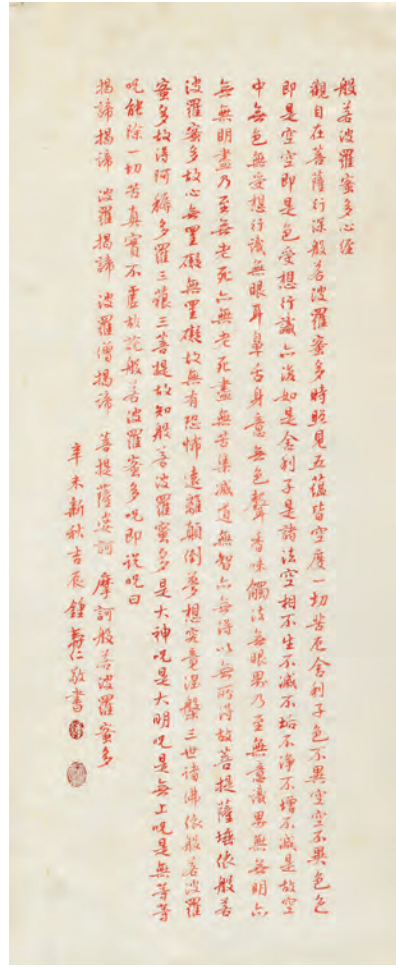 般若波羅蜜多心经
觀自在菩薩行深般若波羅蜜多時照見五蘊皆空度一切苦厄舍利子色不異空空不異色色
即是空空即是色受想行識亦復如是舍利子是諸法空相不生不滅不垢不淨不增不減是故空
中無色無受想行識無眼耳鼻舌身意無色聲香味觸法無眼界乃至無意識界無無明亦
無無明盡乃至無老死亦無老死盡無苦集滅道無智亦無得以無所得故菩提薩埵依般若
波羅蜜多故心無罣礙無罣礙故無有恐怖遠離顛倒夢想究竟涅槃三世諸佛依般若波羅
蜜多故得阿耨多羅三藐三菩提故知般若波羅蜜多是大神呪是大明呪是無上呪是無等等
呪能除一切苦真實不虛故說般若波羅蜜多呪即說呪曰
揭諦揭諦 波羅揭諦 波羅僧揭諦 菩提薩婆訶 摩訶般若波羅蜜多
辛未新秋吉辰鍾壽仁敬書